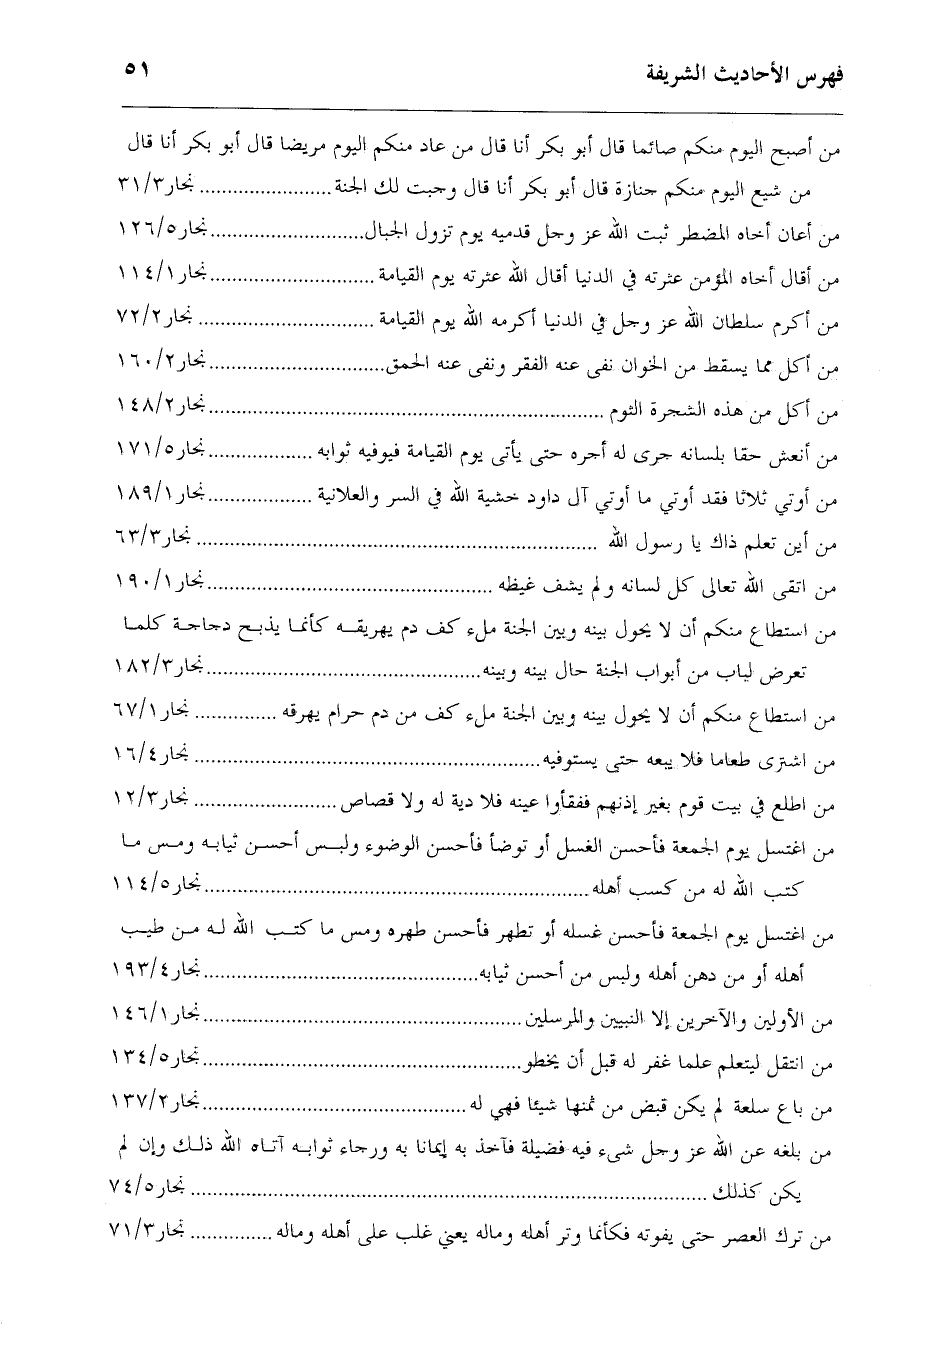 فهرس الأحاديث الشريفة ٥١
من أصبح اليوم منكم صائما قال أبو بكر أنا قال من عاد منكم اليوم مريضا قال أبو بكر أنا قال
من شيع اليوم منكم جنازة قال أبو بكر أنا قال وجبت لك الجنة ........................ نجار٣١/٣
من أعان أخاه المضطر ثبت الله عز وجل قدميه يوم تزول الجبال............................نجار١٢٦/٥
من أقال أخاه المؤمن عثرته في الدنيا أقال الله عثرته يوم القيامة ..............................نجار١١٤/١
من أكرم سلطان الله عز وجل في الدنيا أكرمه الله يوم القيامة ................................نجار٧٢/٢
من أكل مما يسقط من الخوان نفى عنه الفقر ونفى عنه الحمق................................نجار١٦٠/٢
من أكل من هذه الشجرة الثوم ........................................................................نجار١٤٨/٢
من أنعش حقا بلسانه جرى له أجره حتى يأتى يوم القيامة فيوفيه ثوابه ...................نجار١٧١/٥
من أوتي ثلاثا فقد أوتي ما أوتي آل داود خشية الله في السر والعلانية ...................نجار١٨٩/١
من أين تعلم ذاك يا رسول الله ......................................................................... نجار٦٣/٣
من اتقى الله تعالى كل لسانه ولم يشف غيظه ....................................................نجار١٩٠/١
من استطاع منكم أن لا يحول بينه وبين الجنة ملء كف دم يهريقه كأنما يذبح دجاجة كلما
تعرض لباب من أبواب الجنة حال بينه وبينه..................................................نجار١٨٢/٣
من استطاع منكم أن لا يحول بينه وبين الجنة ملء كف من دم حرام يهرقه ............... نجار٦٧/١
من اشترى طعاما فلا يبعه حتى يستوفيه............................................................... نجار١٦/٤
من اطلع في بيت قوم بغير إذنهم ففقأوا عينه فلا دية له ولا قصاص .......................... نجار١٢/٣
من اغتسل يوم الجمعة فأحسن الغسل أو توضأ فأحسن الوضوء ولبس أحسن ثيابه ومس ما
كتب الله له من كسب أهله......................................................................نجار١١٤/٥
من اغتسل يوم الجمعة فأحسن غسله أو تطهر فأحسن طهره ومس ما كتب الله له من طيب
أهله أو من دهن أهله ولبس من أحسن ثيابه..................................................نجار١٩٣/٤
من الأولين والآخرين إلا النبيين والمرسلين..........................................................نجار١٤٦/١
من انتقل ليتعلم علما غفر له قبل أن يخطو..........................................................نجار١٣٤/٥
من باع سلعة لم يكن قبض من ثمنها شيئا فهي له ................................................نجار١٣٧/٢
من بلغه عن الله عز وجل شىء فيه فضيلة فآخذ به إيمانا به ورجاء ثوابه آتاه الله ذلك وإن لم
يكن كذلك ............................................................................................... نجار٧٤/٥
من ترك العصر حتى يفوته فكأنما وتر أهله وماله يعني غلب على أهله وماله ............... نجار٧١/٣